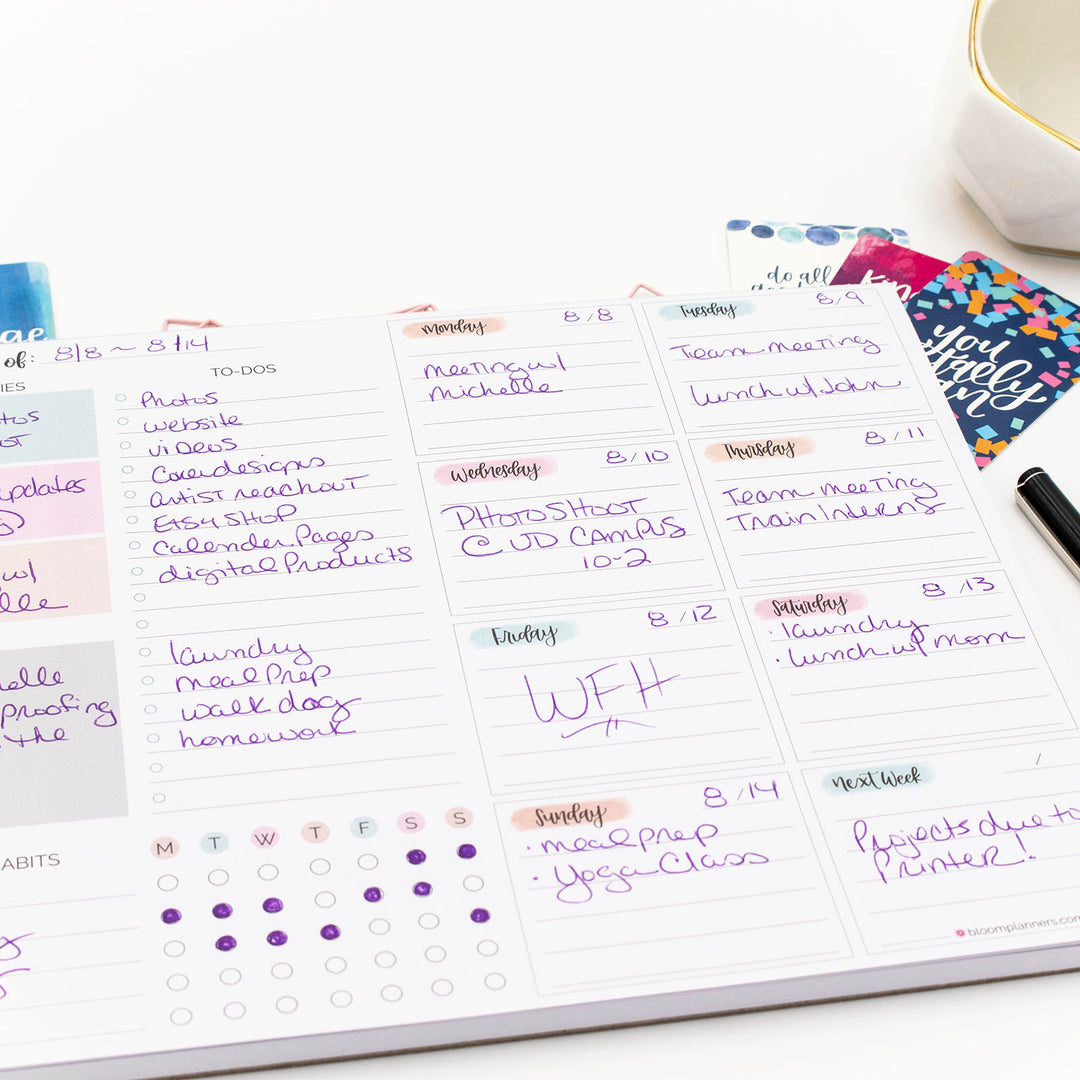 of: 8/8 ~ 8/14
TO-DOS
Photos
website
videos
Coverdesigns
artist reachout
Etsy SHOP
Calender Pages
digital Products
laundry
meal Prep
walk dog
homework
updates
w/
proofing
the
M T W T F S S
Monday 8/8
meeting w/
michelle
Tuesday 8/9
Team meeting
lunch w/ John
Wednesday 8/10
PHOTOSHOOT
@ UD CAMPUS
10-2
Thursday 8/11
Team meeting
Train Interns
Friday 8/12
WFH
Saturday 8/13
· laundry
· lunch w/ mom
Sunday 8/14
· meal prep
· Yoga Class
next Week /
Projects due to
Printer!
bloomplanners.com
do all
you
totally
can